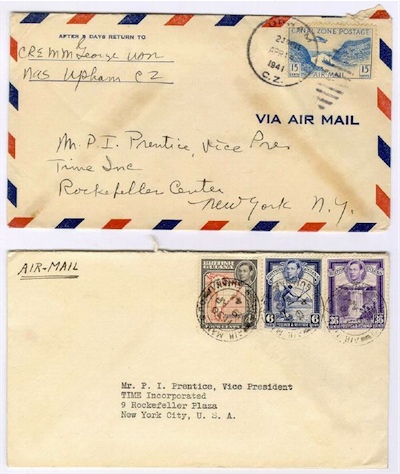 AFTER 5 DAYS RETURN TO
CRE MM George
NAS Upham C Z
1941
C.Z.
CANAL ZONE POSTAGE
15 AIR MAIL 15
VIA AIR MAIL
Mr. P. I. Prentice, Vice Pres
Time Inc
Rockefeller Center
New York N. Y.
AIR-MAIL
BRITISH GUIANA
FOUR CENTS
6 6
36 36
Mr. P. I. Prentice, Vice President
TIME Incorporated
9 Rockefeller Plaza
New York City, U. S. A.